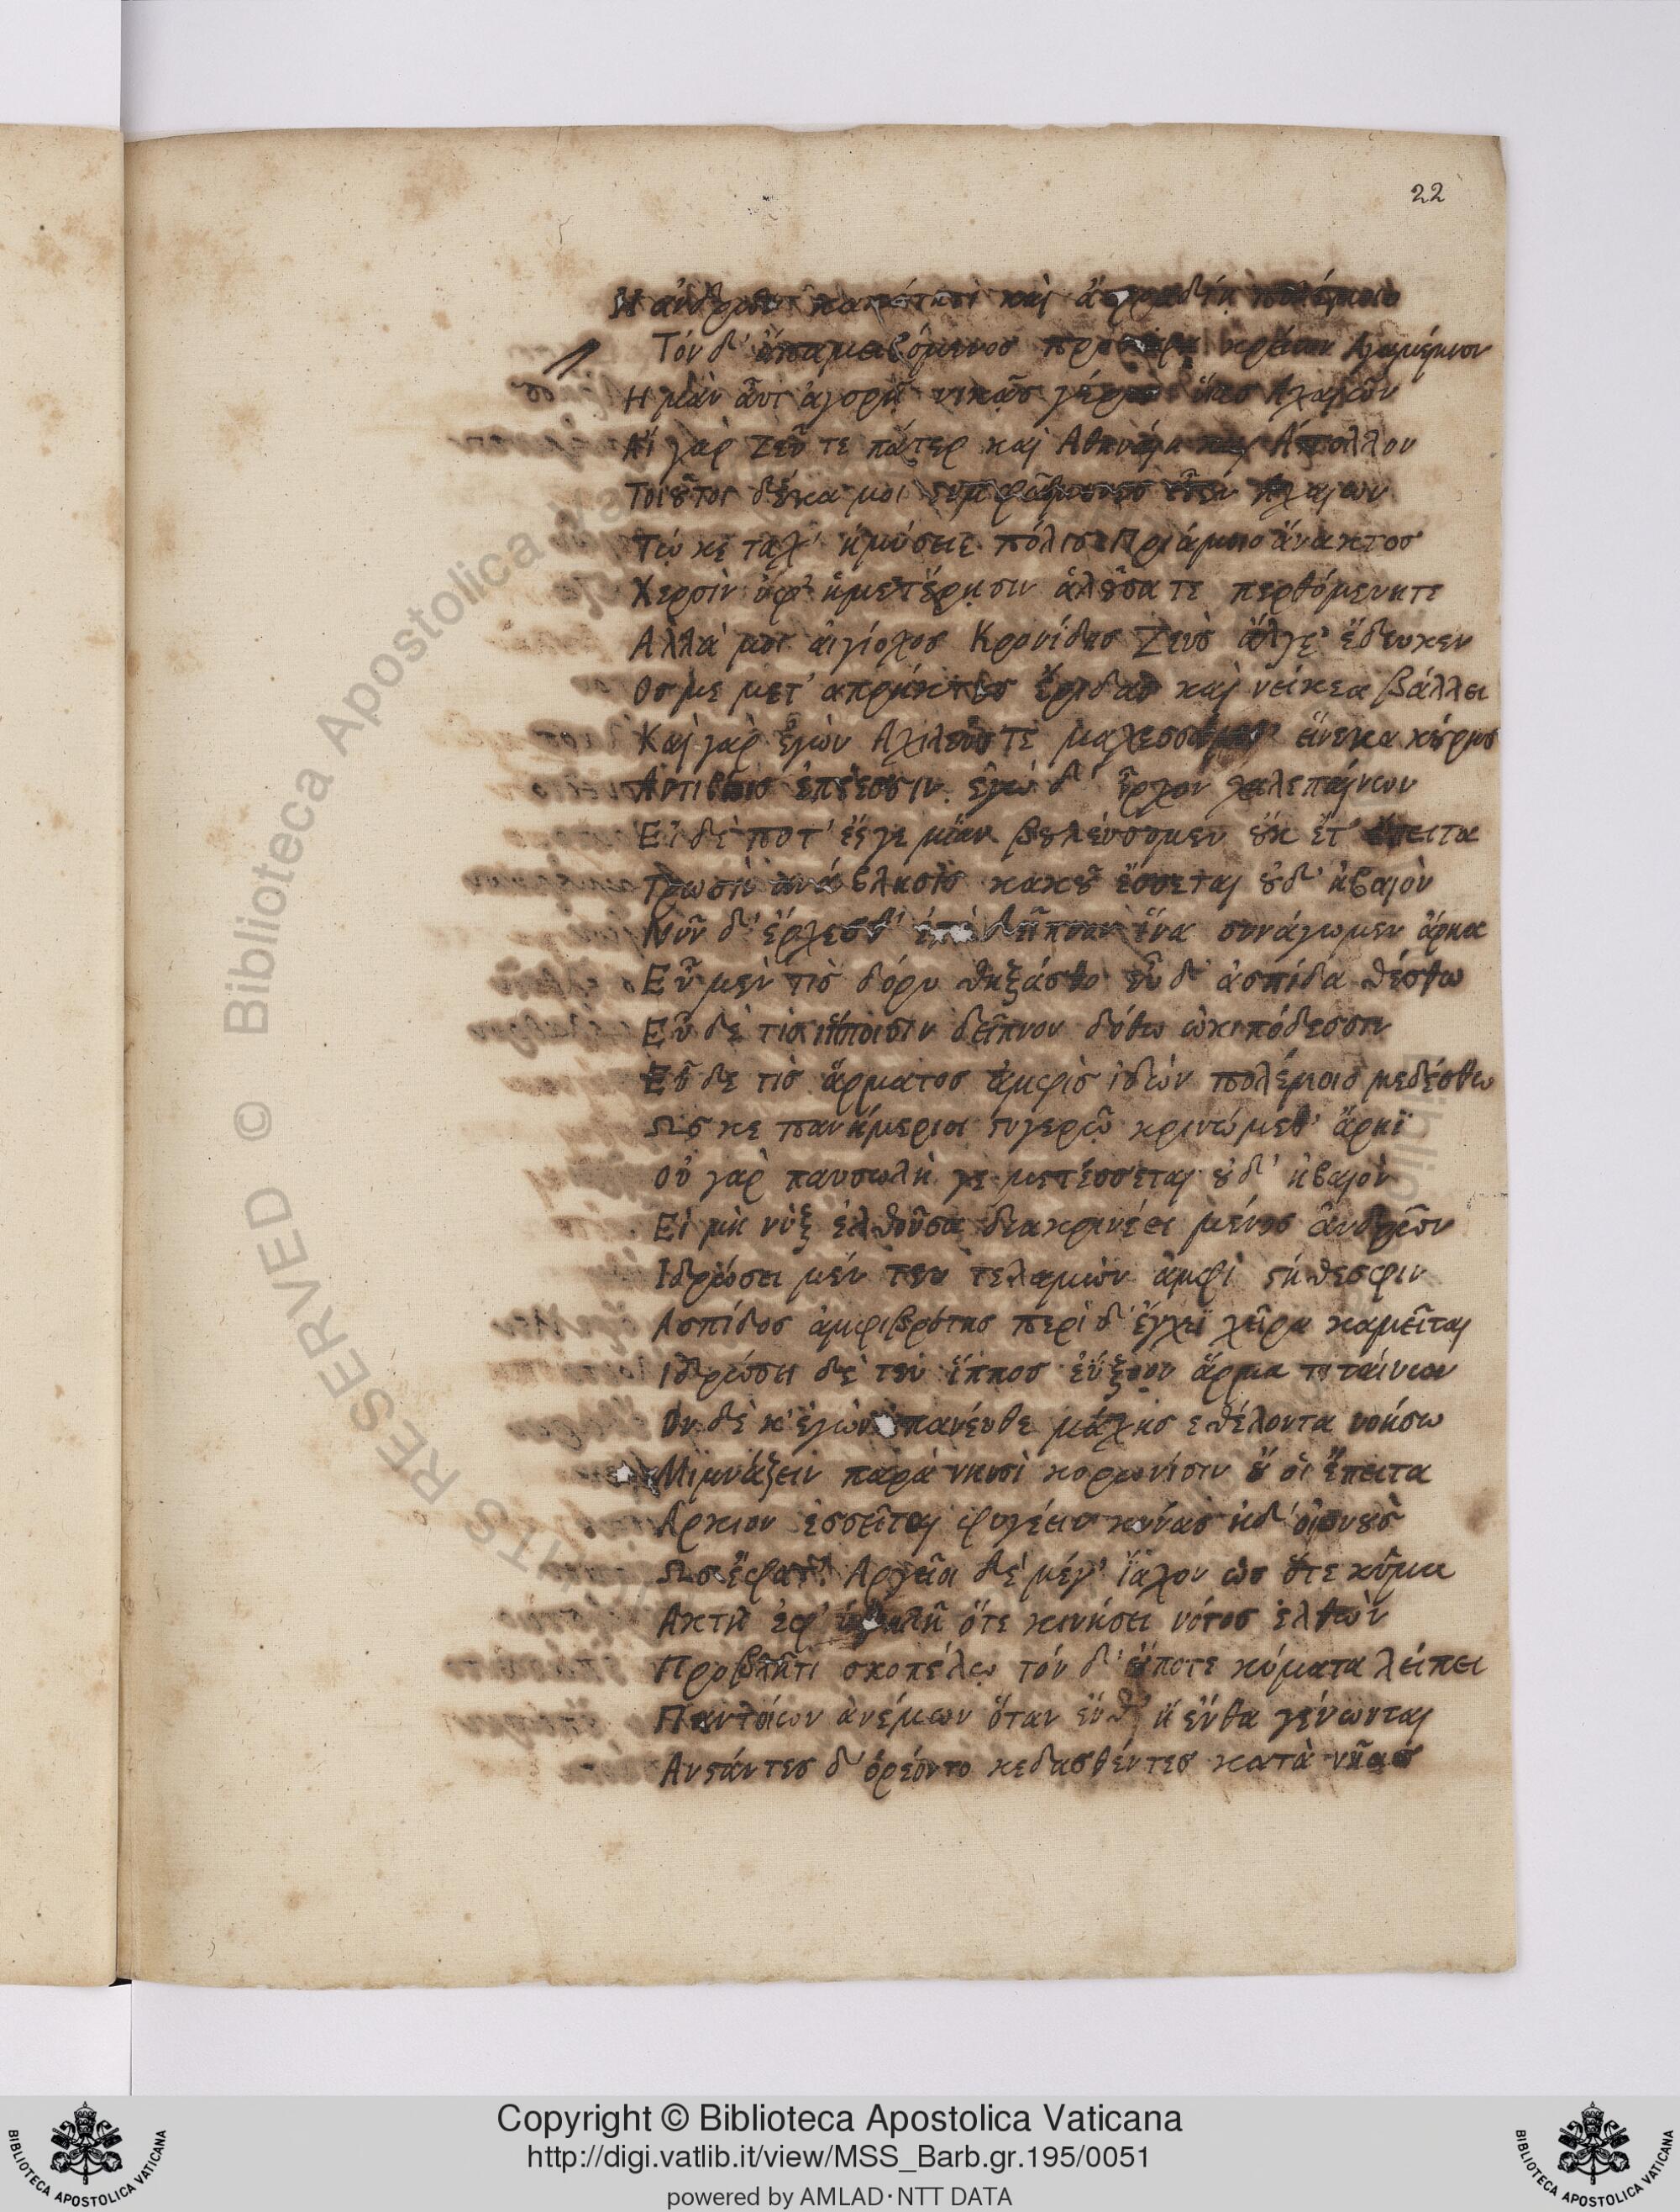 22
Η ἀνδρῶν κακότητι καὶ ἀφραδίῃ πολέμοιο
Τόν δ' ἀπαμειβόμενοσ προσέφη κρείων Ἀγαμέμνον
Η μὰν αὖτ' ἀγορῇ νικᾷσ γέρον υἷασ Ἀχαιῶν
Αἴ γὰρ Ζεῦ τε πάτερ καὶ Ἀθηναίη καὶ Ἄπολλον
Τοιοῦτοι δέκα μοι συμφράδμονεσ εἶεν Ἀχαιων
Τῷ κε τάχ' ἠμύσειε πόλισ Πριάμοιο ἄνακτοσ
Χερσὶν ὑφ' ἡμετέρῃσιν ἁλοῦσα τε περθόμενητε
Αλλὰ μοι αἰγίοχοσ Κρονίδησ Ζεὺσ ἄλγε' ἔδωκεν
Οσ με μετ' απρήκτουσ ἔριδασ καὶ νείκεα βάλλει
Καὶ γαρ ἐγὼν Ἀχιλεύστε μαχεσσάμεθ' εἵνεκα κούρησ
Ἀντιβίοισ ἐπέεσσιν ἐγὼ δ' ἦρχον χαλεπαίνων
Εἰ δέ ποτ' ἔσγε μίαν βουλεύσομεν οὐκ ἔτ' ἔπειτα
Τρωσὶν ἀνάβλησισ κακοῦ ἔσσεται οὐδ' ἠβαιὸν
Νῦν δ' ἔρχεσθ' ἐπὶ δεῖπνον ἵνα συνάγωμεν ἄρηα
Εὖ μέν τὶσ δόρυ θηξάσθο εὖ δ' ἀσπίδα θέσθω
Εὖ δέ τισ ἵπποισιν δεῖπνον δότω ὠκιπόδεσσιν
Εὖ δε τὶσ ἅρματοσ ἀμφὶσ ἰδὼν πολέμοιο μεδέσθω
Ωσ κε πανημέριοι στυγερῷ κρινώμεθ' ἄρηϊ
Οὐ γαρ παυσωλή γε μετέσσεται οὐδ' ἠβαιὸν
Εἰ μὴ νὺξ ἐλθοῦσα διακρινέει μένοσ ἀνδρῶν
Ιδρώσει μέν τευ τελαμὼν ἀμφὶ στήθεσφιν
Ασπίδοσ ἀμφιβρότησ περὶ δ' ἔγχεϊ χεῖρα καμεῖται
Ιδρώσει δέ τευ ἵπποσ ἐύξοον ἅρμα τιταίνων
Ον δέ κ' ἐγὼν ἀπανέυθε μάχησ εθέλοντα νοήσω
Μιμνάζειν παρὰ νηυσὶ κορωνίσιν οὔ οἱ ἔπειτα
Αρκιον ἐσσεῖται φυγέειν κύνασ ἠδ' οἰωνοὺσ
Ωσ ἔφατ' Ἀργεῖοι δέ μέγ' ἴαχον ὡσ ὅτε κῦμα
Ακτῇ ἐφ' ὑψηλῇ ὅτε κινήσει νότοσ ἐλθὼν
Προβλῆτι σκοπέλῳ τόν δ' οὔποτε κύματα λείπει
Παντοίων ἀνέμων ὅταν ἔνθ' ἢ ἔνθα γένωνται
Ανστάντεσ δ' ὀρέοντο κεδασθέντεσ κατὰ νῆασ
© Biblioteca Apostolica Vaticana
Copyright © Biblioteca Apostolica Vaticana
http://digi.vatlib.it/view/MSS_Barb.gr.195/0051
powered by AMLAD·NTT DATA
BIBLIOTECA APOSTOLICA VATICANA
BIBLIOTECA APOSTOLICA VATICANA